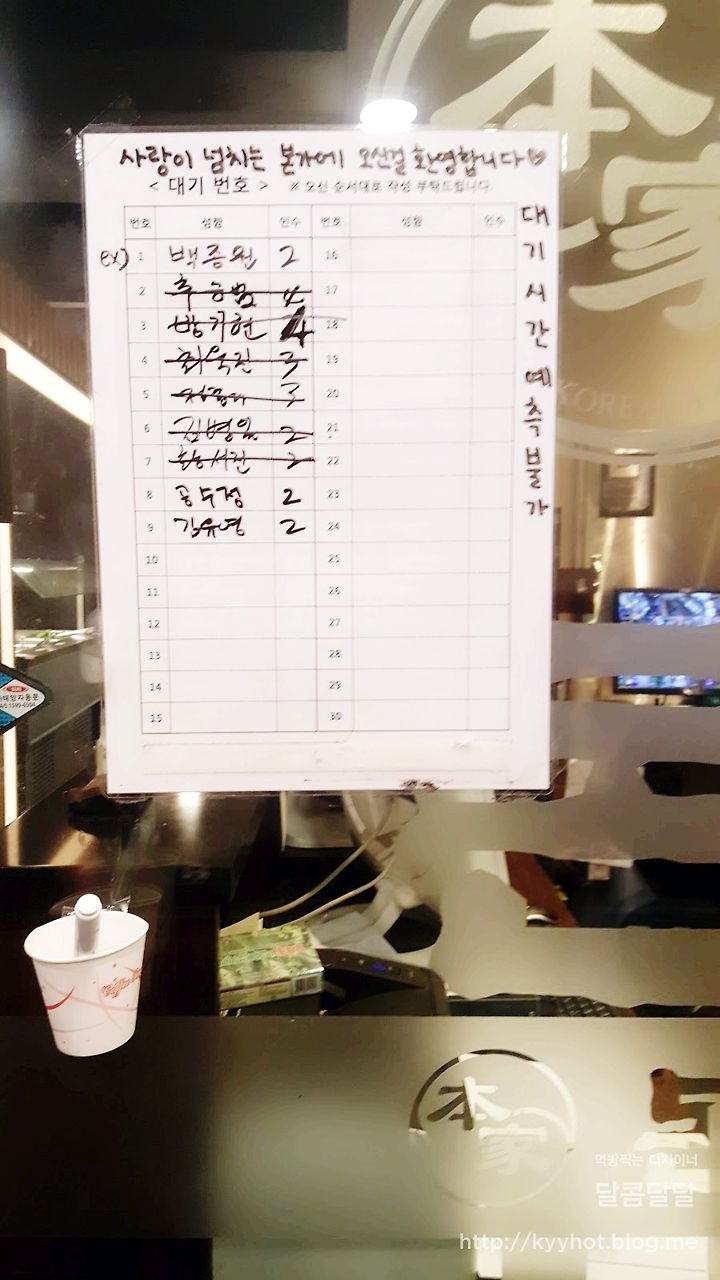 사랑이 넘치는 본가에 오신걸 환영합니다♥
< 대기 번호 > ※ 오신 순서대로 작성 부탁드립니다.
번호 성함 인수 번호 성함 인수
ex) 1 백종원 2 16
2 4 17
3 방기현 4 18
4 최욱진 3 19
5 3 20
6 김병일 2 21
7 2 22
8 공수정 2 23
9 김유영 2 24
10 25
11 26
12 27
13 28
14 29
15 30
대기시간예측불가
本家
KORE
本家
먹방찍는 디자이너
달콤달달
http://kyyhot.blog.me